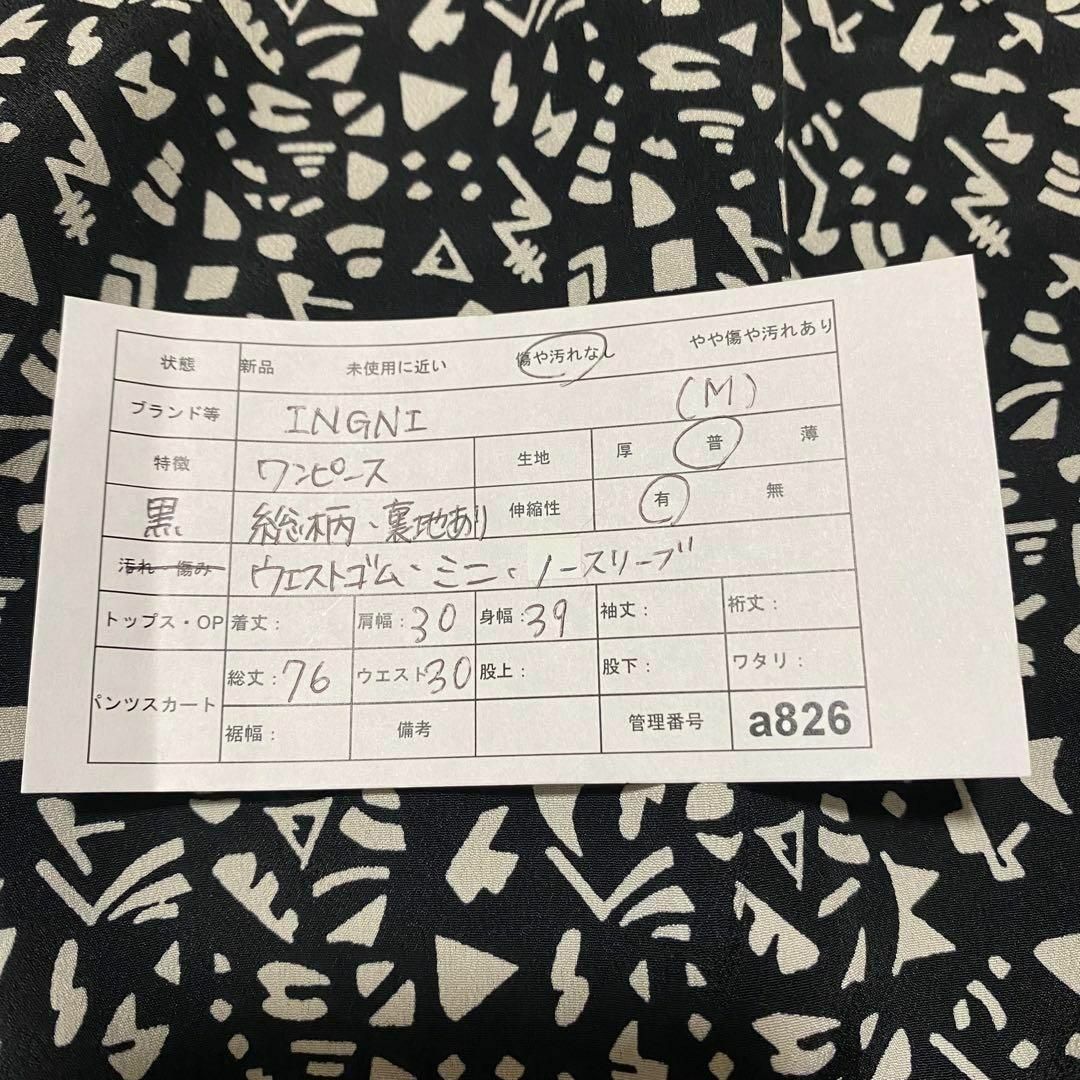 状態 新品 未使用に近い 傷や汚れなし やや傷や汚れあり
ブランド等 INGNI (M)
特徴 ワンピース 生地 厚 普 薄
黒 総柄・裏地あり 伸縮性 有 無
汚れ・傷み ウエストゴム・ミニ・ノースリーブ
トップス・OP 着丈: 肩幅:30 身幅:39 袖丈: 裄丈:
パンツスカート 総丈:76 ウエスト30 股上: 股下: ワタリ:
裾幅: 備考 管理番号 a826